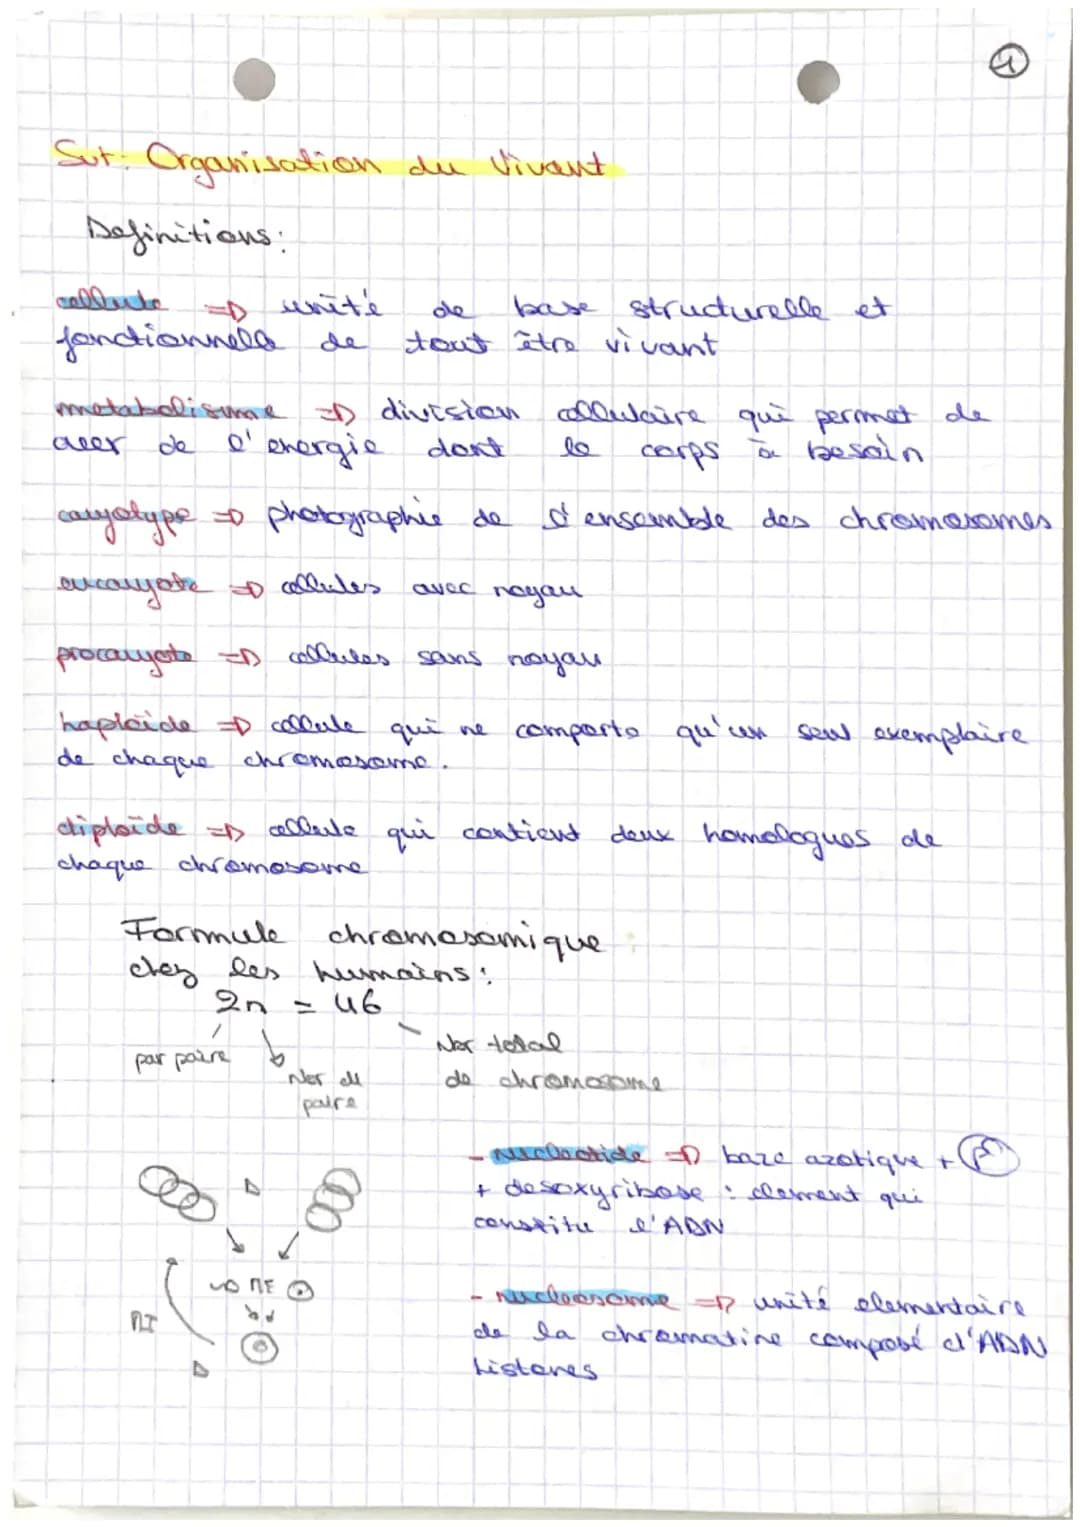 1
Svt: Organisation du Vivant
Definitions:
cellule => unité de base structurelle et
fonctionnelle de tout être vivant
metabolisme => division cellulaire qui permet de
creer de l'energie dont le corps à besoin
caryotype => photographie de l'ensemble des chromosomes
eucaryote => cellules avec noyau
procaryote => cellules sans noyau
haploïde => cellule qui ne comporte qu'un seul exemplaire
de chaque chromosome.
diploïde => cellule qui contient deux homologues de
chaque chromosome
Formule chromosomique
chez les humains:
2n = 46
par paire
Nbr de
paire
Nbr total
de chromosome
- nucleotide => baze azotique + P
+ desoxyribose : element qui
constitu l'ADN
ME
MI
- nucleosome => unité elementaire
de la chromatine composé d'ADN
histones